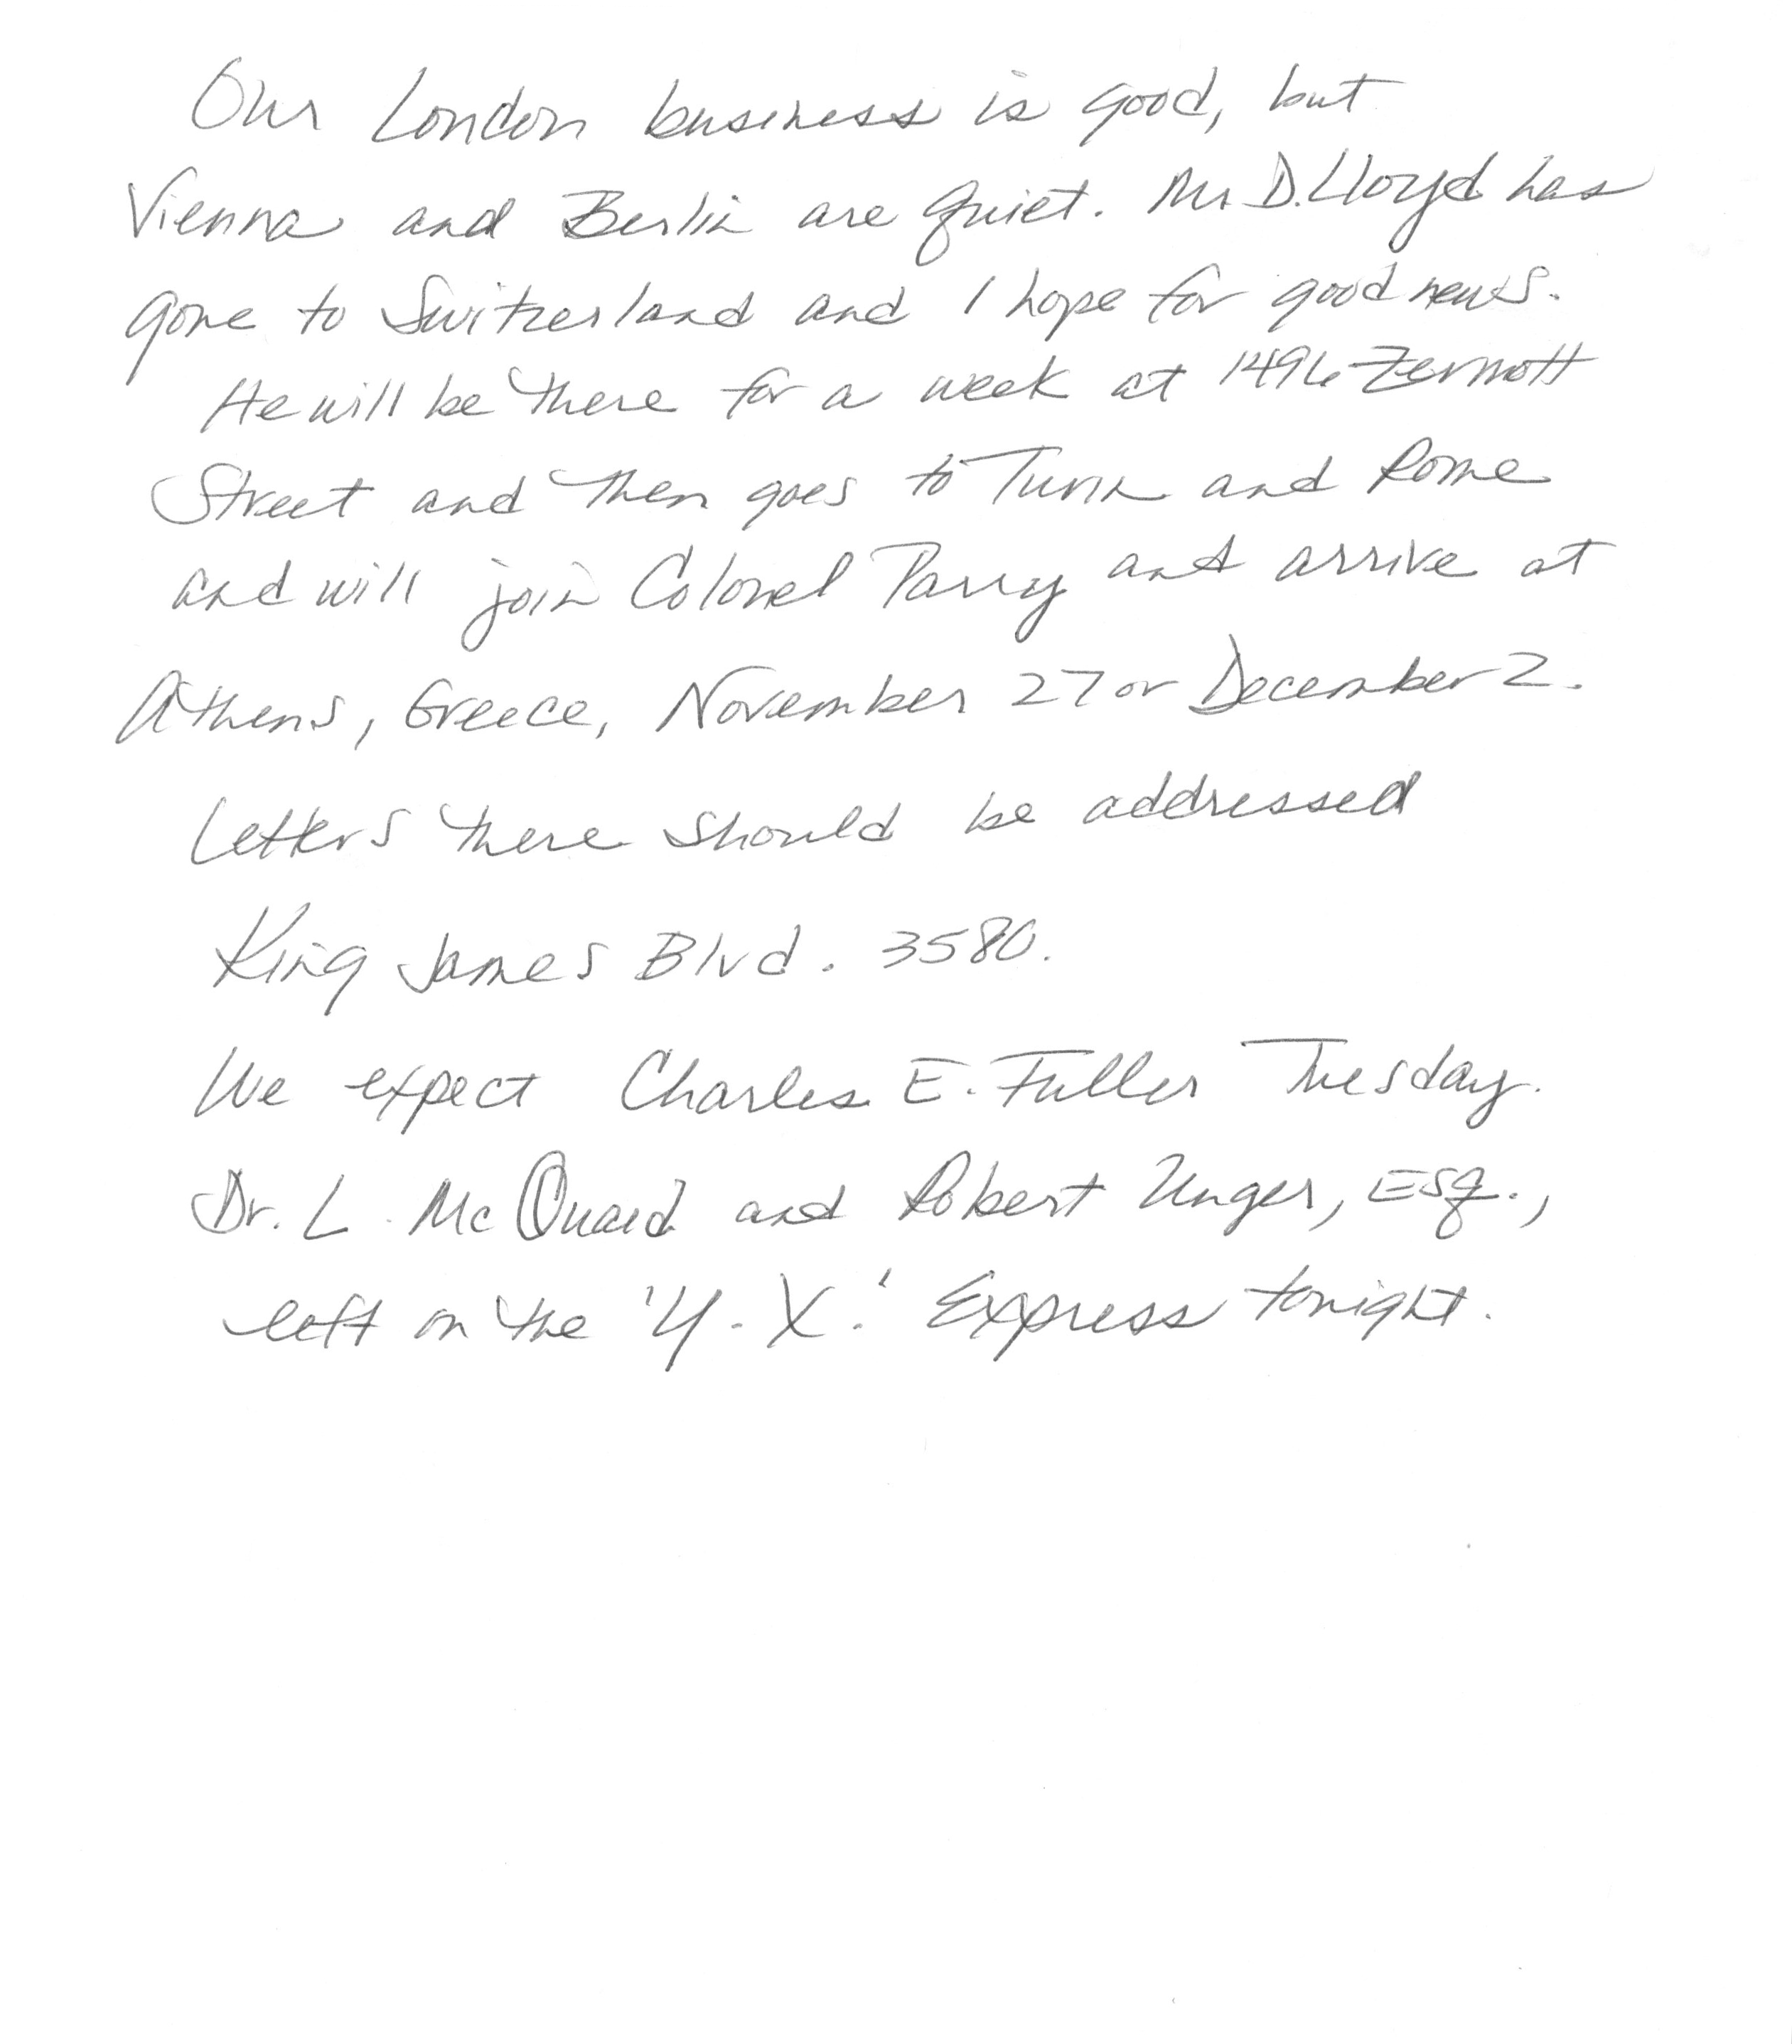 Our London business is good, but
Vienna and Berlin are quiet. Mr. D. Lloyd has
gone to Switzerland and I hope for good news.
He will be there for a week at 1496 Zermott
Street and then goes to Turin and Rome
and will join Colonel Parry and arrive at
Athens, Greece, November 27 or December 2.
Letters there should be addressed
King James Blvd. 3580.
We expect Charles E. Fuller Tuesday.
Dr. L. McQuaid and Robert Unger, Esq.,
left on the 'Y. X.' Express tonight.